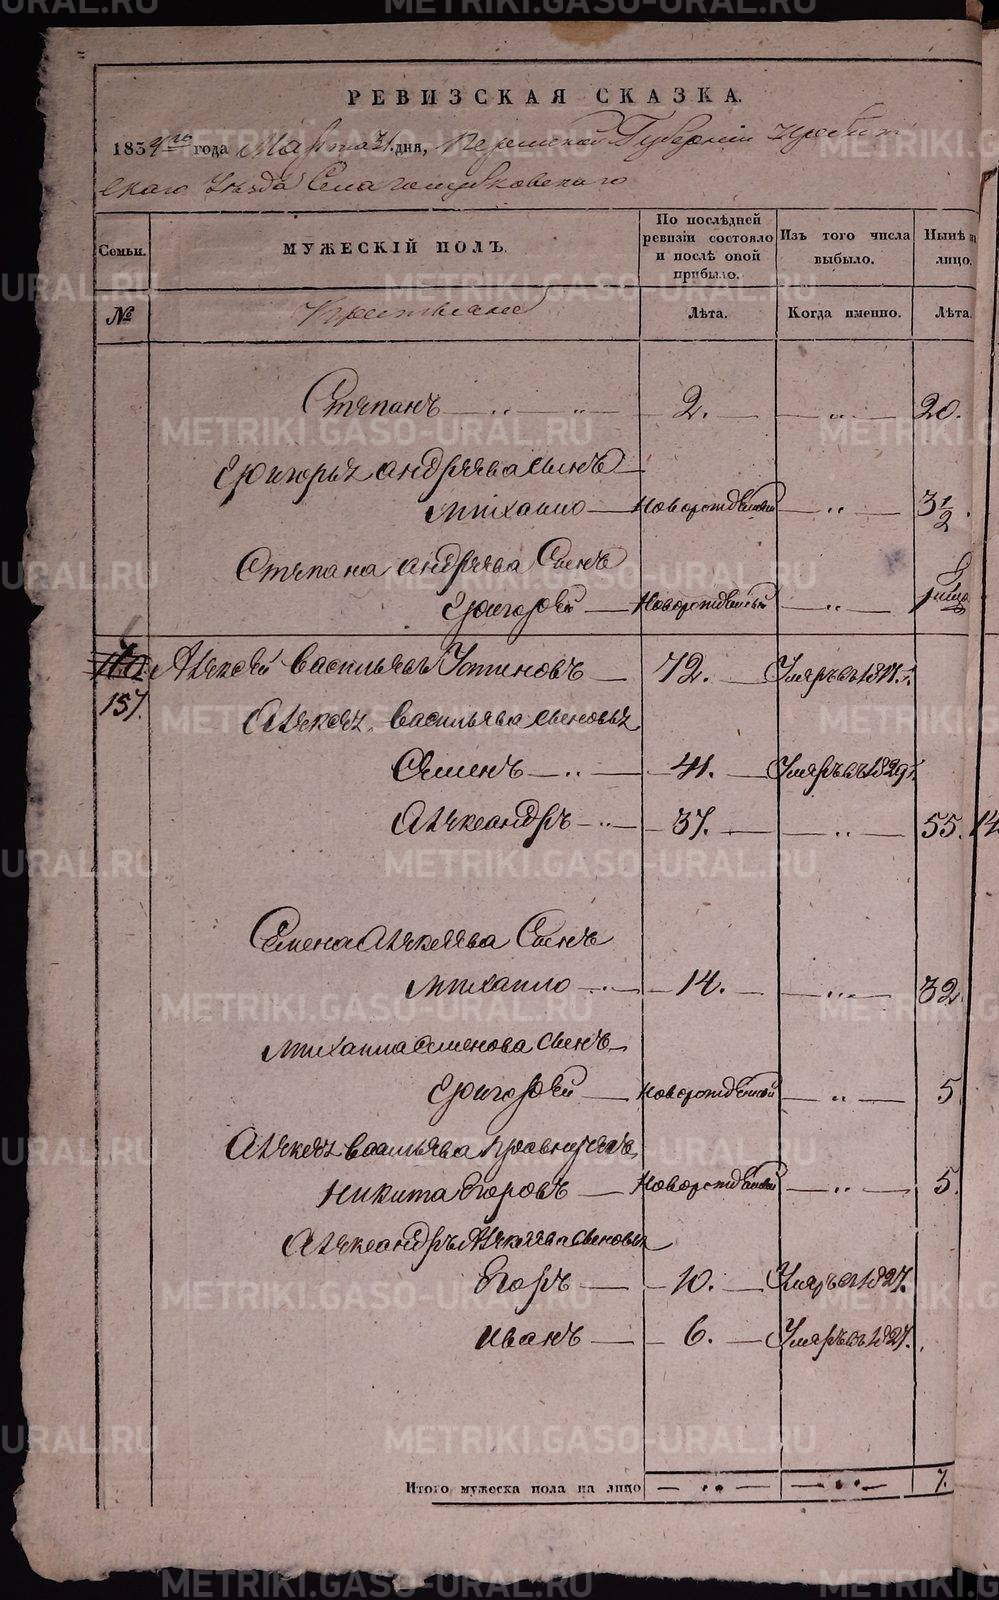 РЕВИЗСКАЯ СКАЗКА.
1834го года Марта 31 дня, Пермской Губернии Ирбит
скаго Уѣзда Села
Семьи. МУЖЕСКІЙ ПОЛЪ. По послѣдней ревизіи состояло и послѣ оной прибыло. Изъ того числа выбыло. Нынѣ на лицо.
№ Крестьяне Лѣта. Когда именно. Лѣта.
Степанъ — „ — „ — 2. — „ — 20.
Григорья Андреева сынъ
Михайло — Новорожденный — „ — 3 1/2.
Степана Андреева Сынъ
Григорей — Новорожденный — „ —
160 Алексѣй Васильевъ Устиновъ — 72. Умеръ въ
157. Алексея Васильева сыновья
Семенъ — „ — 41. — Умеръ въ 1829 г.
Александръ — „ — 37. — „ — 55. 14
Семена Алексеева Сынъ
Михайло — „ — 14. — „ — 32
Михаила Семенова сынъ
Григорей — новорожденный — „ — 5
Алексея Васильева правнучекъ
Никита Егоровъ — Новорожденный — „ — 5.
Александры Алексеева сыновья
Егоръ — 10. — Умеръ въ 1827.
Иванъ — 6. — Умеръ въ 1827.
Итого мужеска пола на лицо — „ — — „ — 7.
METRIKI.GASO-URAL.RU